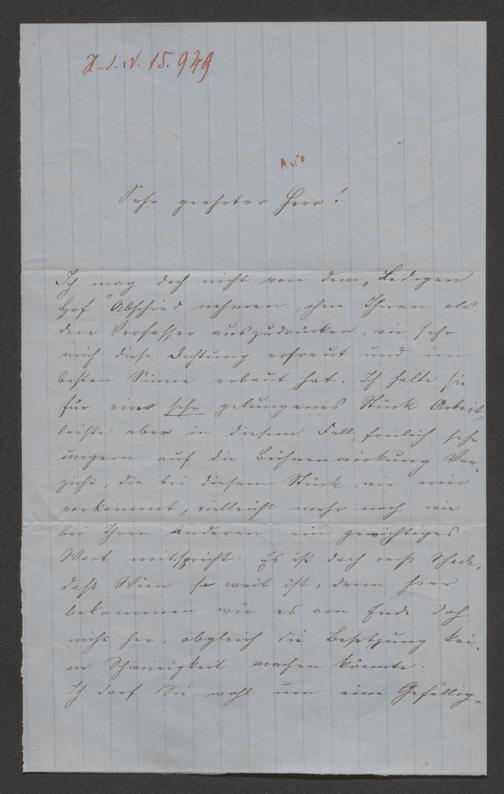 H.I.N. 15.949
Sehr geehrter Herr!
Ich mag doch nicht von dem „Ledigen
Hof" Abschied nehmen, ohne Ihnen als
dem Verfasser auszudrücken, wie sehr
mich diese Dichtung erfreut und im
besten Sinne erbaut hat. Ich halte sie
für eine sehr gelungenes Stück Arbeit
leiste aber in diesem Fall, freilich sehr
ungern auf die Bühnenwirkung Ver-
zicht, die bei diesem Stück, wie mir
vorkommt, vielleicht mehr noch wie
bei Ihren anderen ein gewichtiges
Wort mitspricht. Es ist doch recht Schade,
daß Wien so weit ist, denn hier
bekommen wir es am Ende doch
nicht her, obgleich die Besetzung kei-
ne Schwierigkeit machen könnte.
Ich darf Sie wohl um eine Gefällig-